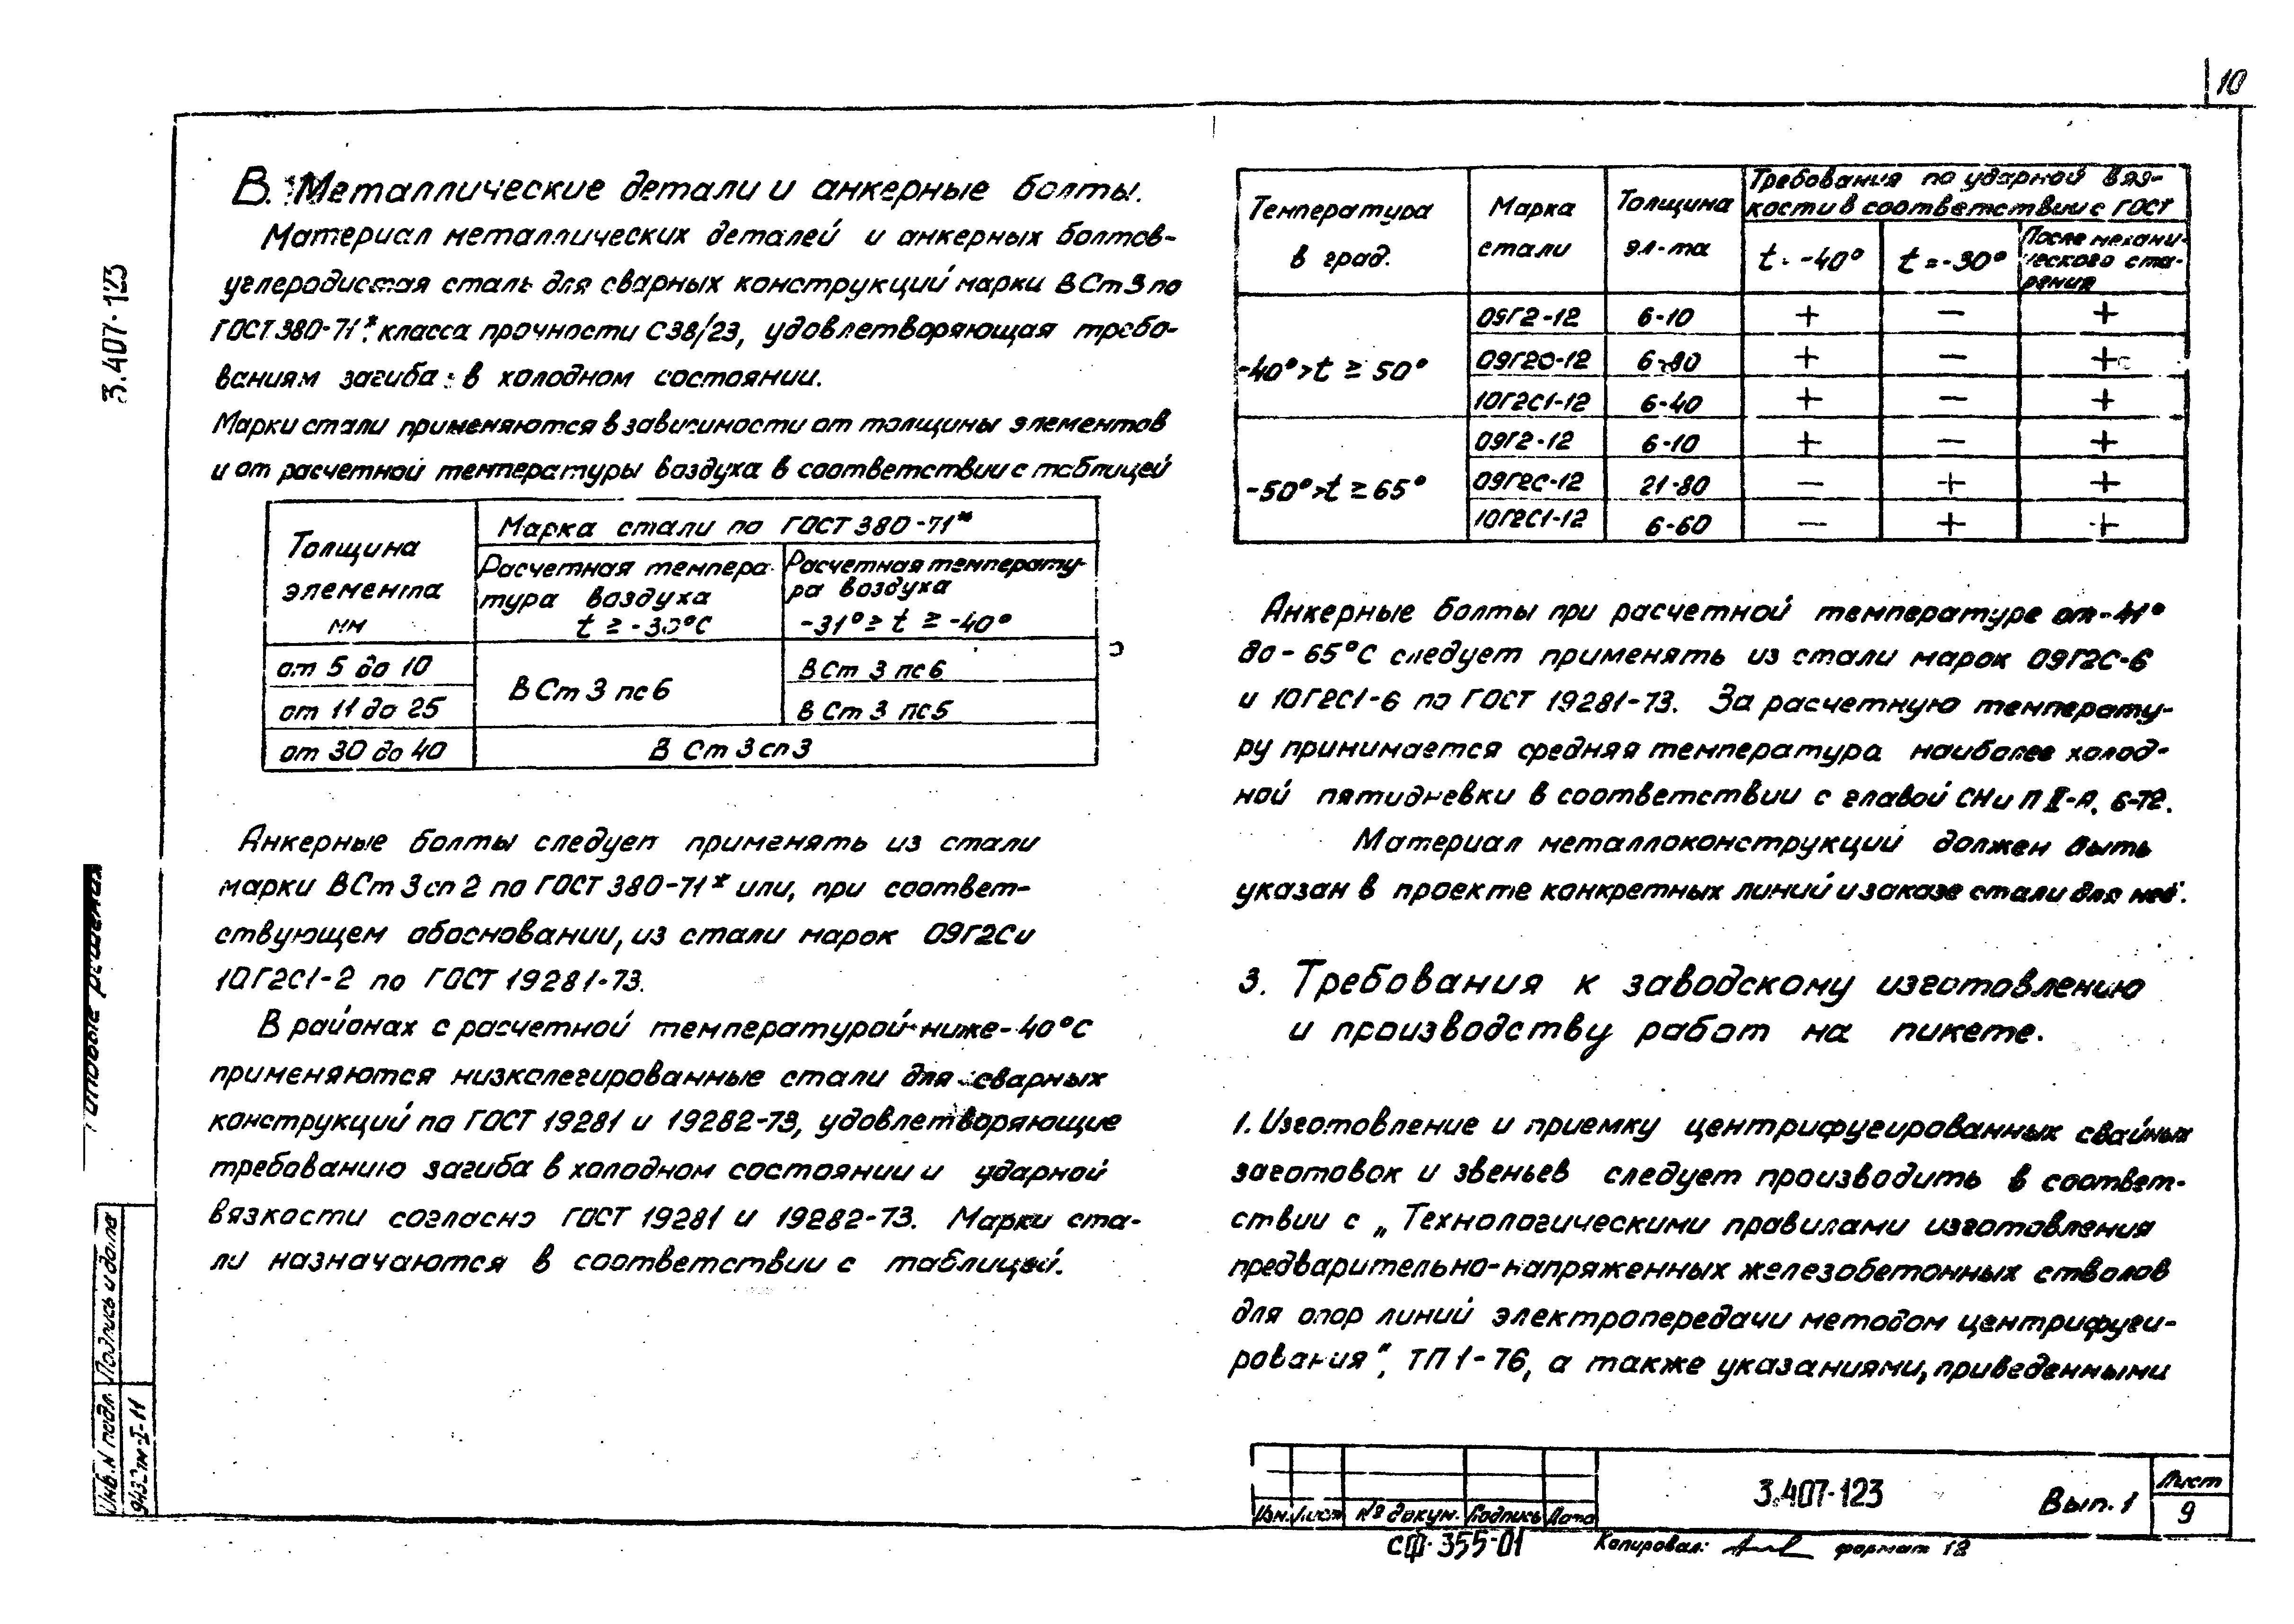 10
3.407-123
В. Металлические детали и анкерные болты.
Материал металлических деталей и анкерных болтов-
углеродистая сталь для сварных конструкций марки ВСт3 по
ГОСТ 380-71* класса прочности С38/23, удовлетворяющая требо-
ваниям загиба в холодном состоянии.
Марки стали применяются в зависимости от толщины элементов
и от расчетной температуры воздуха в соответствии с таблицей
Толщина элемента мм
Марка стали по ГОСТ 380-71*
Расчетная темпера-
тура воздуха
t ≥ -30°С
Расчетная температу-
ра воздуха
-31° ≥ t ≥ -40°
от 5 до 10 ВСт 3 пс 6 ВСт 3 пс6
от 11 до 25 ВСт 3 пс5
от 30 до 40 В Ст 3 сп 3
Анкерные болты следует применять из стали
марки ВСт 3 сп 2 по ГОСТ 380-71* или, при соответ-
ствующем обосновании, из стали марок 09Г2С и
10Г2С1-2 по ГОСТ 19281-73.
В районах с расчетной температурой ниже -40°С
применяются низколегированные стали для сварных
конструкций по ГОСТ 19281 и 19282-73, удовлетворяющие
требованию загиба в холодном состоянии и ударной
вязкости согласно ГОСТ 19281 и 19282-73. Марки ста-
ли назначаются в соответствии с таблицей.
Температура в град.
Марка стали
Толщина эл-та
Требования по ударной вяз-
кости в соответствии с ГОСТ
t = -40°
t = -30°
После механи-
ческого ста-
рения
-40° > t ≥ 50°
09Г2-12 6-10 + − +
09Г2С-12 6-80 + − +
10Г2С1-12 6-40 + − +
-50° > t ≥ 65°
09Г2-12 6-10 + − +
09Г2С-12 21-80 − + +
10Г2С1-12 6-60 − + +
Анкерные болты при расчетной температуре от -41°
до -65°С следует применять из стали марок 09Г2С-6
и 10Г2С1-6 по ГОСТ 19281-73. За расчетную температу-
ру принимается средняя температура наиболее холод-
ной пятидневки в соответствии с главой СНиП II-А. 6-72.
Материал металлоконструкций должен быть
указан в проекте конкретных линий и заказе стали для неё.
3. Требования к заводскому изготовлению
и производству работ на пикете.
1. Изготовление и приемку центрифугированных свайных
заготовок и звеньев следует производить в соответ-
ствии с „Технологическими правилами изготовления
предварительно-напряженных железобетонных стволов
для опор линий электропередачи методом центрифуги-
рования", ТП 1-76, а также указаниями, приведенными
Типовые решения
Подпись и дата
Инв. N подл.
9432тм-I-11
Изм. Лист № докум. Подпись Дата
3.407-123
Вып. 1
Лист
9
СФ-355-01
Копировал:
формат 12